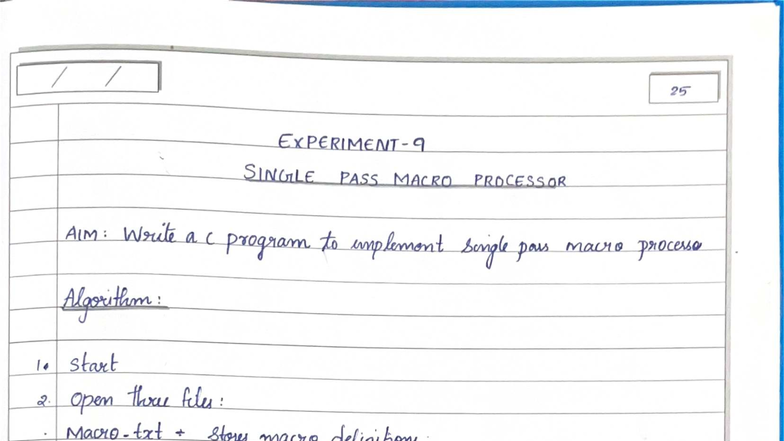 / /
25
EXPERIMENT-9
SINGLE PASS MACRO PROCESSOR
AIM: Write a c program to implement single pass macro processo
Algorithm:
1. Start
2. Open three files:
. Macro.txt + Stores macro definitions.